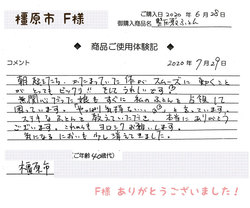 橿原市 F様
ご購入日 2020年6月28日
御購入商品名
商品ご使用体験記
コメント
2020年7月29日
朝起きたら、カタまっていた体がスムーズに動くこと
がとってもビックリ!! そして うれしいです。
無関心だった娘もすぐに私のふとんを占領して
困っています。 やっぱり気持ちいい と言っています。
ステキなふとんを教えていただき、本当にありがとう
ございます。これからもヨロシクお願いします。
気になる においも少し消えてきました。
ご年齢(40歳代)
橿原市
F様 ありがとうございました!